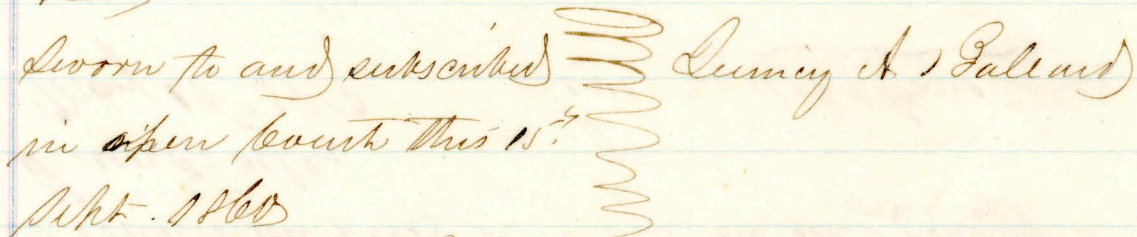 Sworn to and subscribed
in open Court this 15th
Sept. 1860
Quincy A Ballard